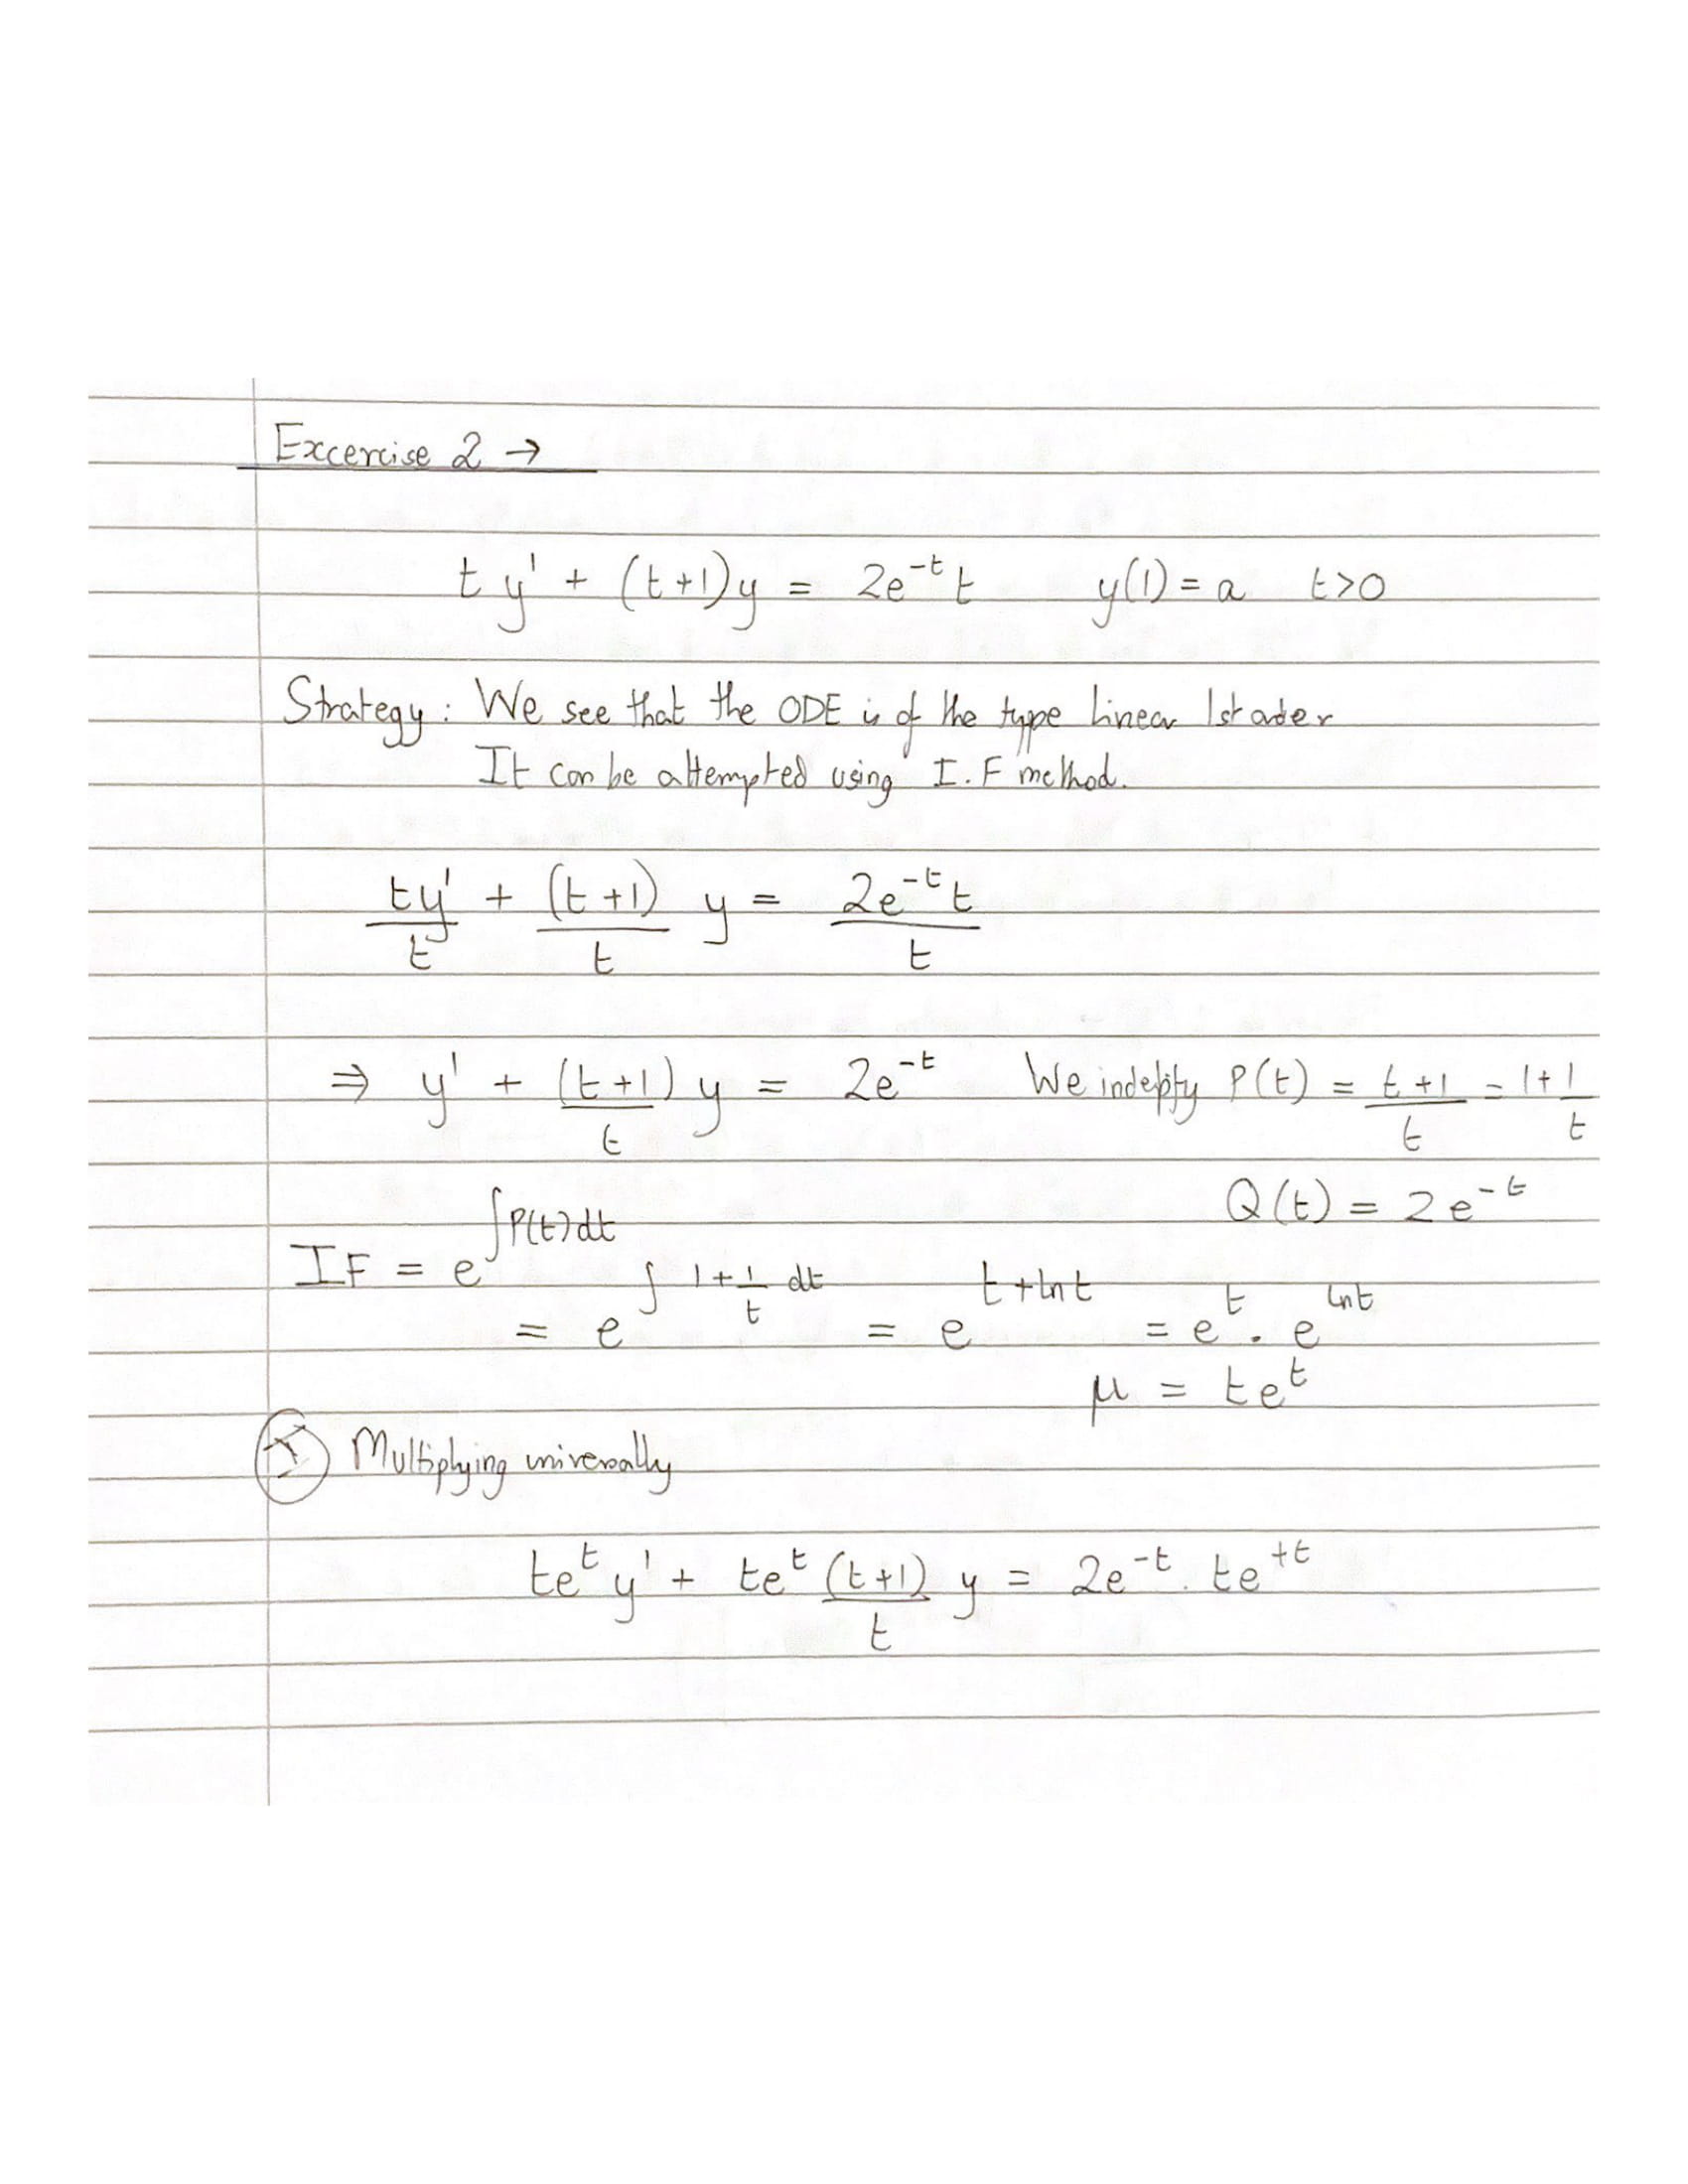 Excercise 2 →
t y' + (t+1)y = 2e^{-t} t y(1) = a t>0
Strategy : We see that the ODE is of the type linear 1st order
It can be attempted using I.F method.
ty'/t + (t+1)/t y = 2e^{-t} t/t
⇒ y' + (t+1)/t y = 2e^{-t} We indetify P(t) = t+1/t = 1+1/t
Q(t) = 2e^{-t}
IF = e^{∫P(t)dt}
= e^{∫ 1+1/t dt} = e^{t+lnt} = e^t . e^{lnt}
μ = te^t
Multiplying universally
te^t y' + te^t (t+1)/t y = 2e^{-t} . te^{+t}